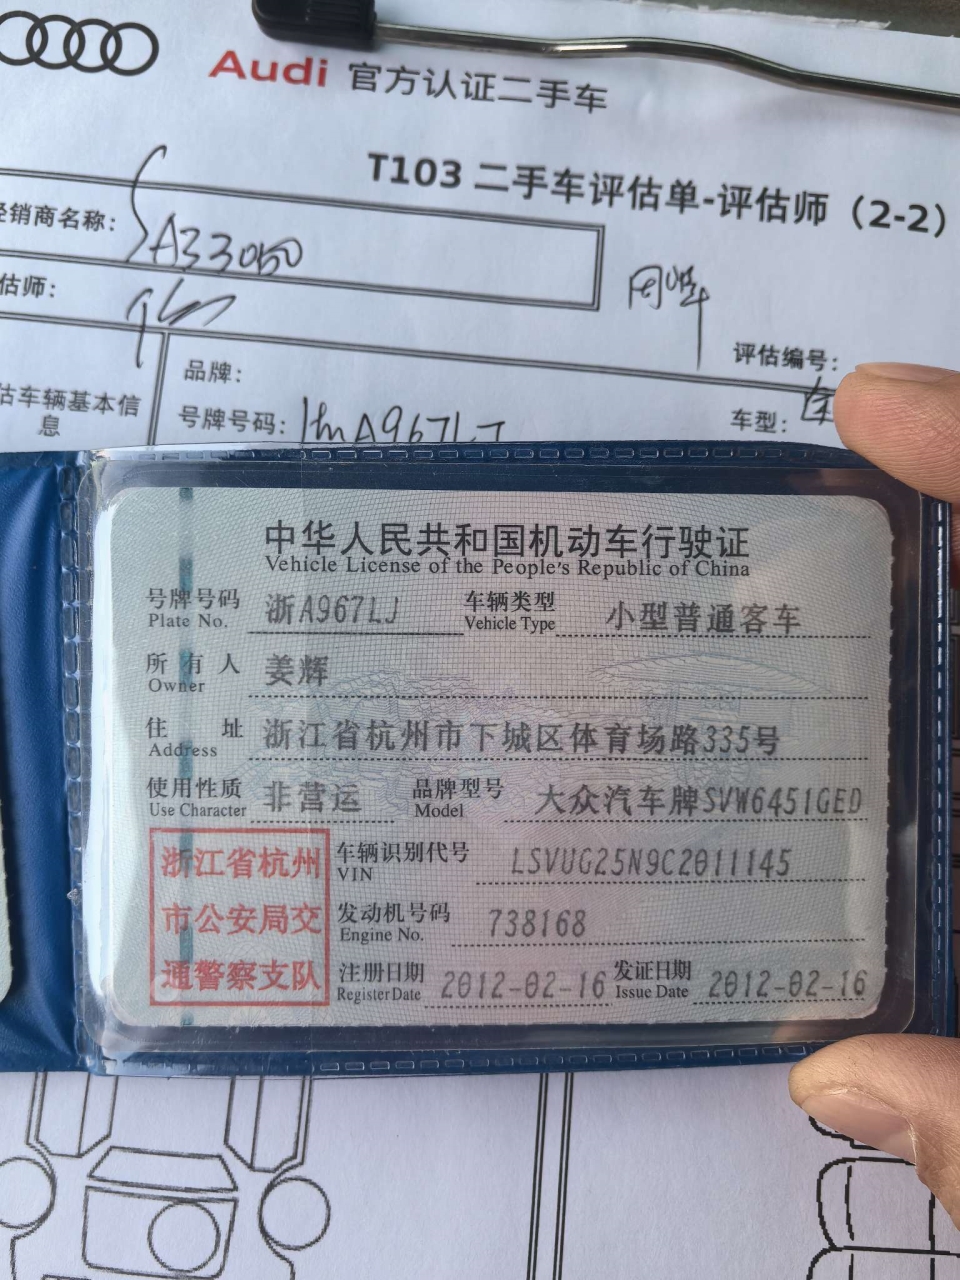 Audi 官方认证二手车
T103 二手车评估单-评估师（2-2）
经销商名称：
SA33080
估师：
评估编号：
品牌：
估车辆基本信
息
号牌号码：浙A967LJ
车型：途
中华人民共和国机动车行驶证
Vehicle License of the People's Republic of China
号牌号码 浙A967LJ 车辆类型 小型普通客车
Plate No. Vehicle Type
所有人 姜辉
Owner
住址 浙江省杭州市下城区体育场路335号
Address
使用性质 非营运 品牌型号 大众汽车牌SVW6451GED
Use Character Model
浙江省杭州
市公安局交
通警察支队
车辆识别代号 LSVUG25N9C2011145
VIN
发动机号码 738168
Engine No.
注册日期 2012-02-16 发证日期 2012-02-16
Register Date Issue Date